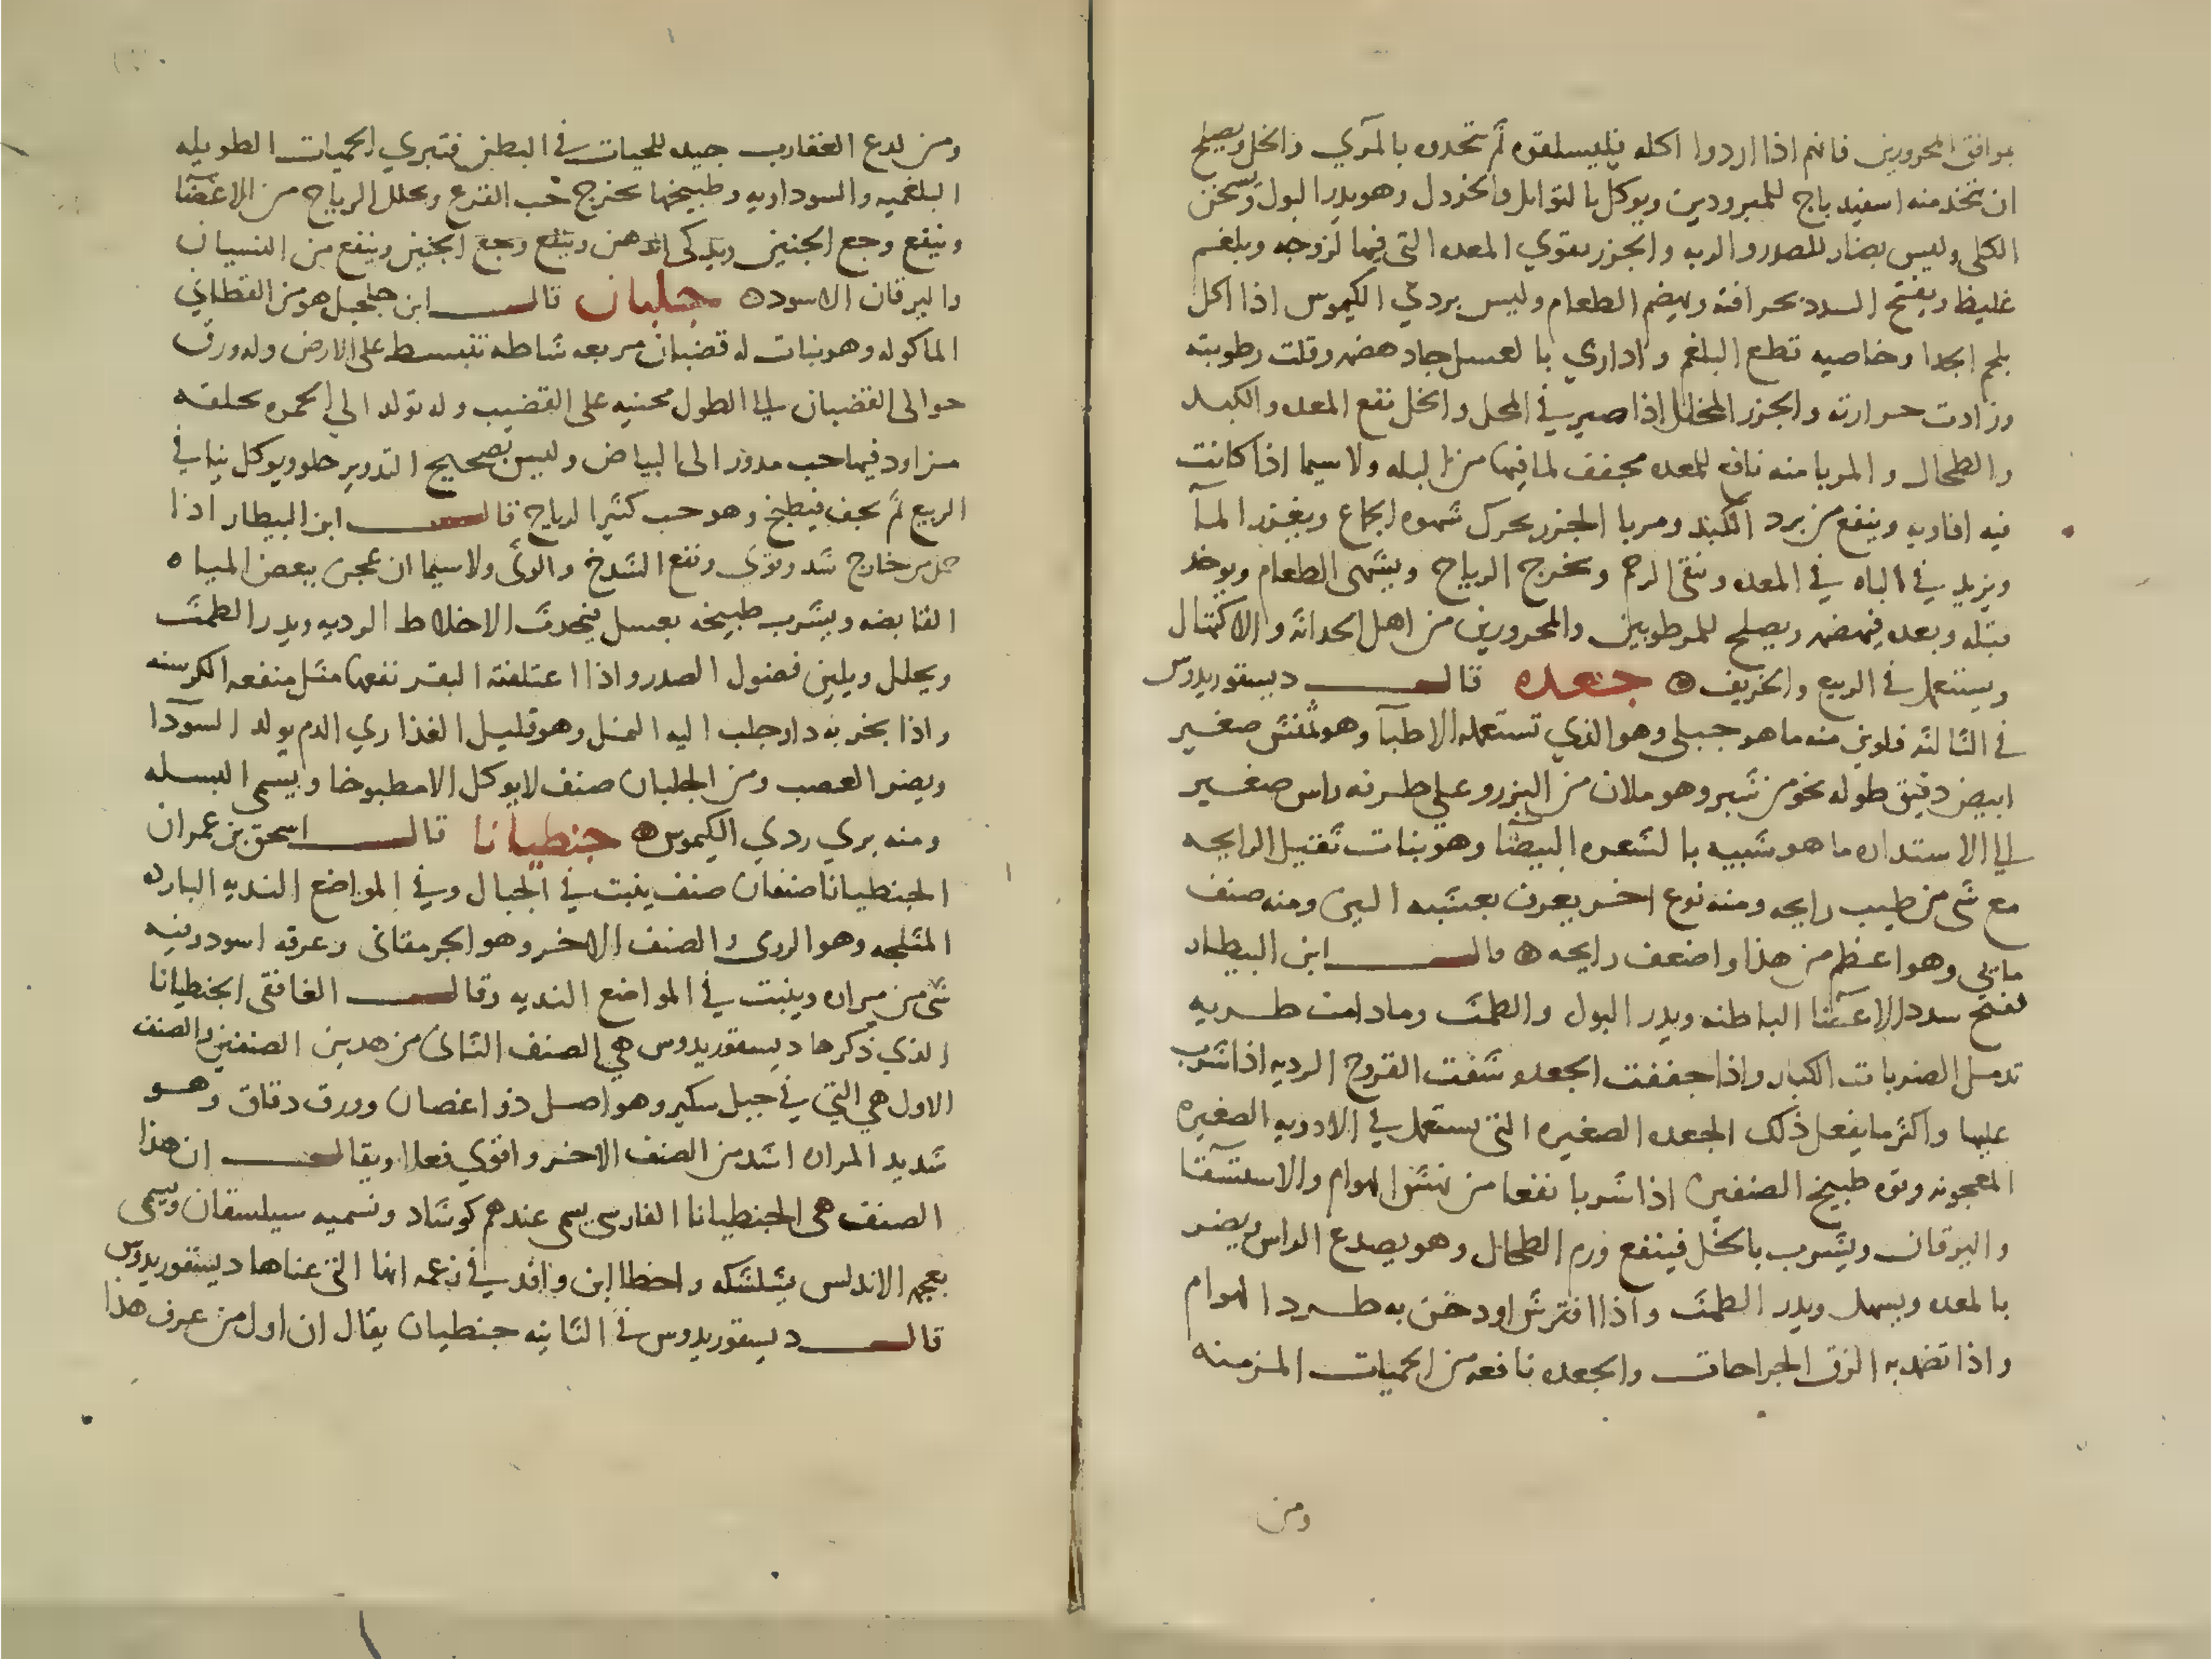 يوافق المحرورين فانهم اذا اردوا اكله فليسلقوه ثم تحدوه بالمري والخل ويصلح
ان تتخذ منه اسفيدباج للمبرودين ويوكل بالتوابل والخردل وهو يدر البول ويسخن
الكلى وليس بضار للصدر والريه والجزر يقوي المعده التى فيها لزوجه وبلغم
غليظا ويفتح السدد بحرافته ويهضم الطعام وليس بردي الكيموس اذا اكل
بلحم الجدا وخاصيه قطع البلغم واداري بالعسل جاد هضمه وقلت رطوبته
وزادت حرارته والجزر المخلل اذا صير في المحل والخل نفع المعده والكبد
والطحال والمربا منه نافع للمعده مجفف لما فيها من البله ولا سيما اذا كانت
فيه افاويه وينفع من برد الكبد ومربا الجزر يحرك شهوه الجماع ويغزر الما
ويزيد في الباه في المعده وينقي الرحم ويخرج الرياح ويشهى الطعام ويوخذ
قبله وبعده فيهضمه ويصلح للمرطوبين والمحرورين من اهل الحداثه والاكتهال
ويستعمل في الربيع والخريف ۞ جعده قال ديسقوريدوس
في الثالثه فلويون منه ما هو جبلي وهو الذي تستعمله الاطبا وهو تمنش صغير
ابيض دقيق طوله نحو من شبر وهو ملان من البزر وعلى طرفه راس صغير
الى الاستداره ما هو شبيه بالشعره البيضا وهو نبات ثقيل الرايحه
مع شى من طيب رايحه ومنه نوع اخر يعرف بعشبه البن ومنه صنف
ما يي وهو اعظم من هذا واضعف رايحه ۞ قال ابن البيطار
تفتح سدد الاعضا الباطنه ويدر البول والطمث وما دامت طريه
تدمل الضربات الكبار واذا جففت الجعده شفت القروح الرديه اذا شرب
عليها واكثر ما يفعل ذلك الجعده الصغيره التى تستعمل في الادويه الصغيره
المعجونه وقوه طبيخ الصنفين اذا شربا نفعا من نهش الهوام والاستسقا
واليرقان ويشرب بالخل فينفع ورم الطحال وهو يصدع الراس ويضر
بالمعده ويسهل ويدر الطمث واذا افترش او دخن به طرد الهوام
واذا تضمد به الزق الجراحات والجعده نافعه من الحميات المزمنه
ومن
ومن لدع العقارب جيده للحيات في البطن فتبري الحميات الطويله
البلغميه والسوداويه وطبيخها يخرج حب القرع ويحلل الرياح من الاعضا
وينفع وجع الجنبين ويذكى الذهن وينفع وجع الجنبين وينفع من النسيان
واليرقان الاسود ۞ جلبان قال ابن جلجل هو من القطاني
الماكوله وهو نبات له قضبان مربعه شاطه تنبسط على الارض وله ورق
حوالى القضبان الى الطول محنيه على القضيب وله تولد الى الحمره يخلفه
مزاود فيها حب مدور الى البياض وليس بصحيح التدوير حلو ويوكل نيا في
الربيع ثم يجف فيطبخ وهو حب كثير الرياح قال ابن البيطار اذا
حمل من خارج شد وقوى ونفع الشدخ والوثى ولا سيما ان عجن ببعض المياه
القابضه ويشرب طبيخه بعسل فيحدث الاخلاط الرديه ويدر الطمث
ويحلل ويلين فضول الصدر واذا اعتلفته البقر نفعها مثل منفعه الكرسنه
واذا بخر به دار جلب اليه النمل وهو قليل الغذا ردي الدم يولد السودا
ويضر العصب ومن الجلبان صنف لا يوكل الا مطبوخا ويسمى البسله
ومنه بري ردي الكيموس ۞ جنطيانا قال اسحق بن عمران
الجنطيانا صنفان صنف ينبت في الجبال وفي المواضع النديه البارده
المثلجه وهو الرومى والصنف الاخر وهو الجرمقانى وعرقه اسود وفيه
شى من مراره وينبت في المواضع النديه وقال الغافقى الجنطيانا
الذي ذكرها ديسقوريدوس هي الصنف الثانى من هدين الصنفين والصنف
الاول هي التي في جبل سكير وهو اصل ذو اغصان وورق دقاق وهو
شديد المراره اشد من الصنف الاخر واقوي فعلا ويقال ان هذا
الصنف هى الجنطيانا الفارسى يسمى عندهم كوشاد ونسميه سيلسقان ويسمى
بعجميه الاندلس بشلشكه واخطا ابن وافد في زعمه انها التى عناها ديسقوريدوس
قال ديسقوريدوس في الثانيه جنطيان يقال ان اول من عرف هذا